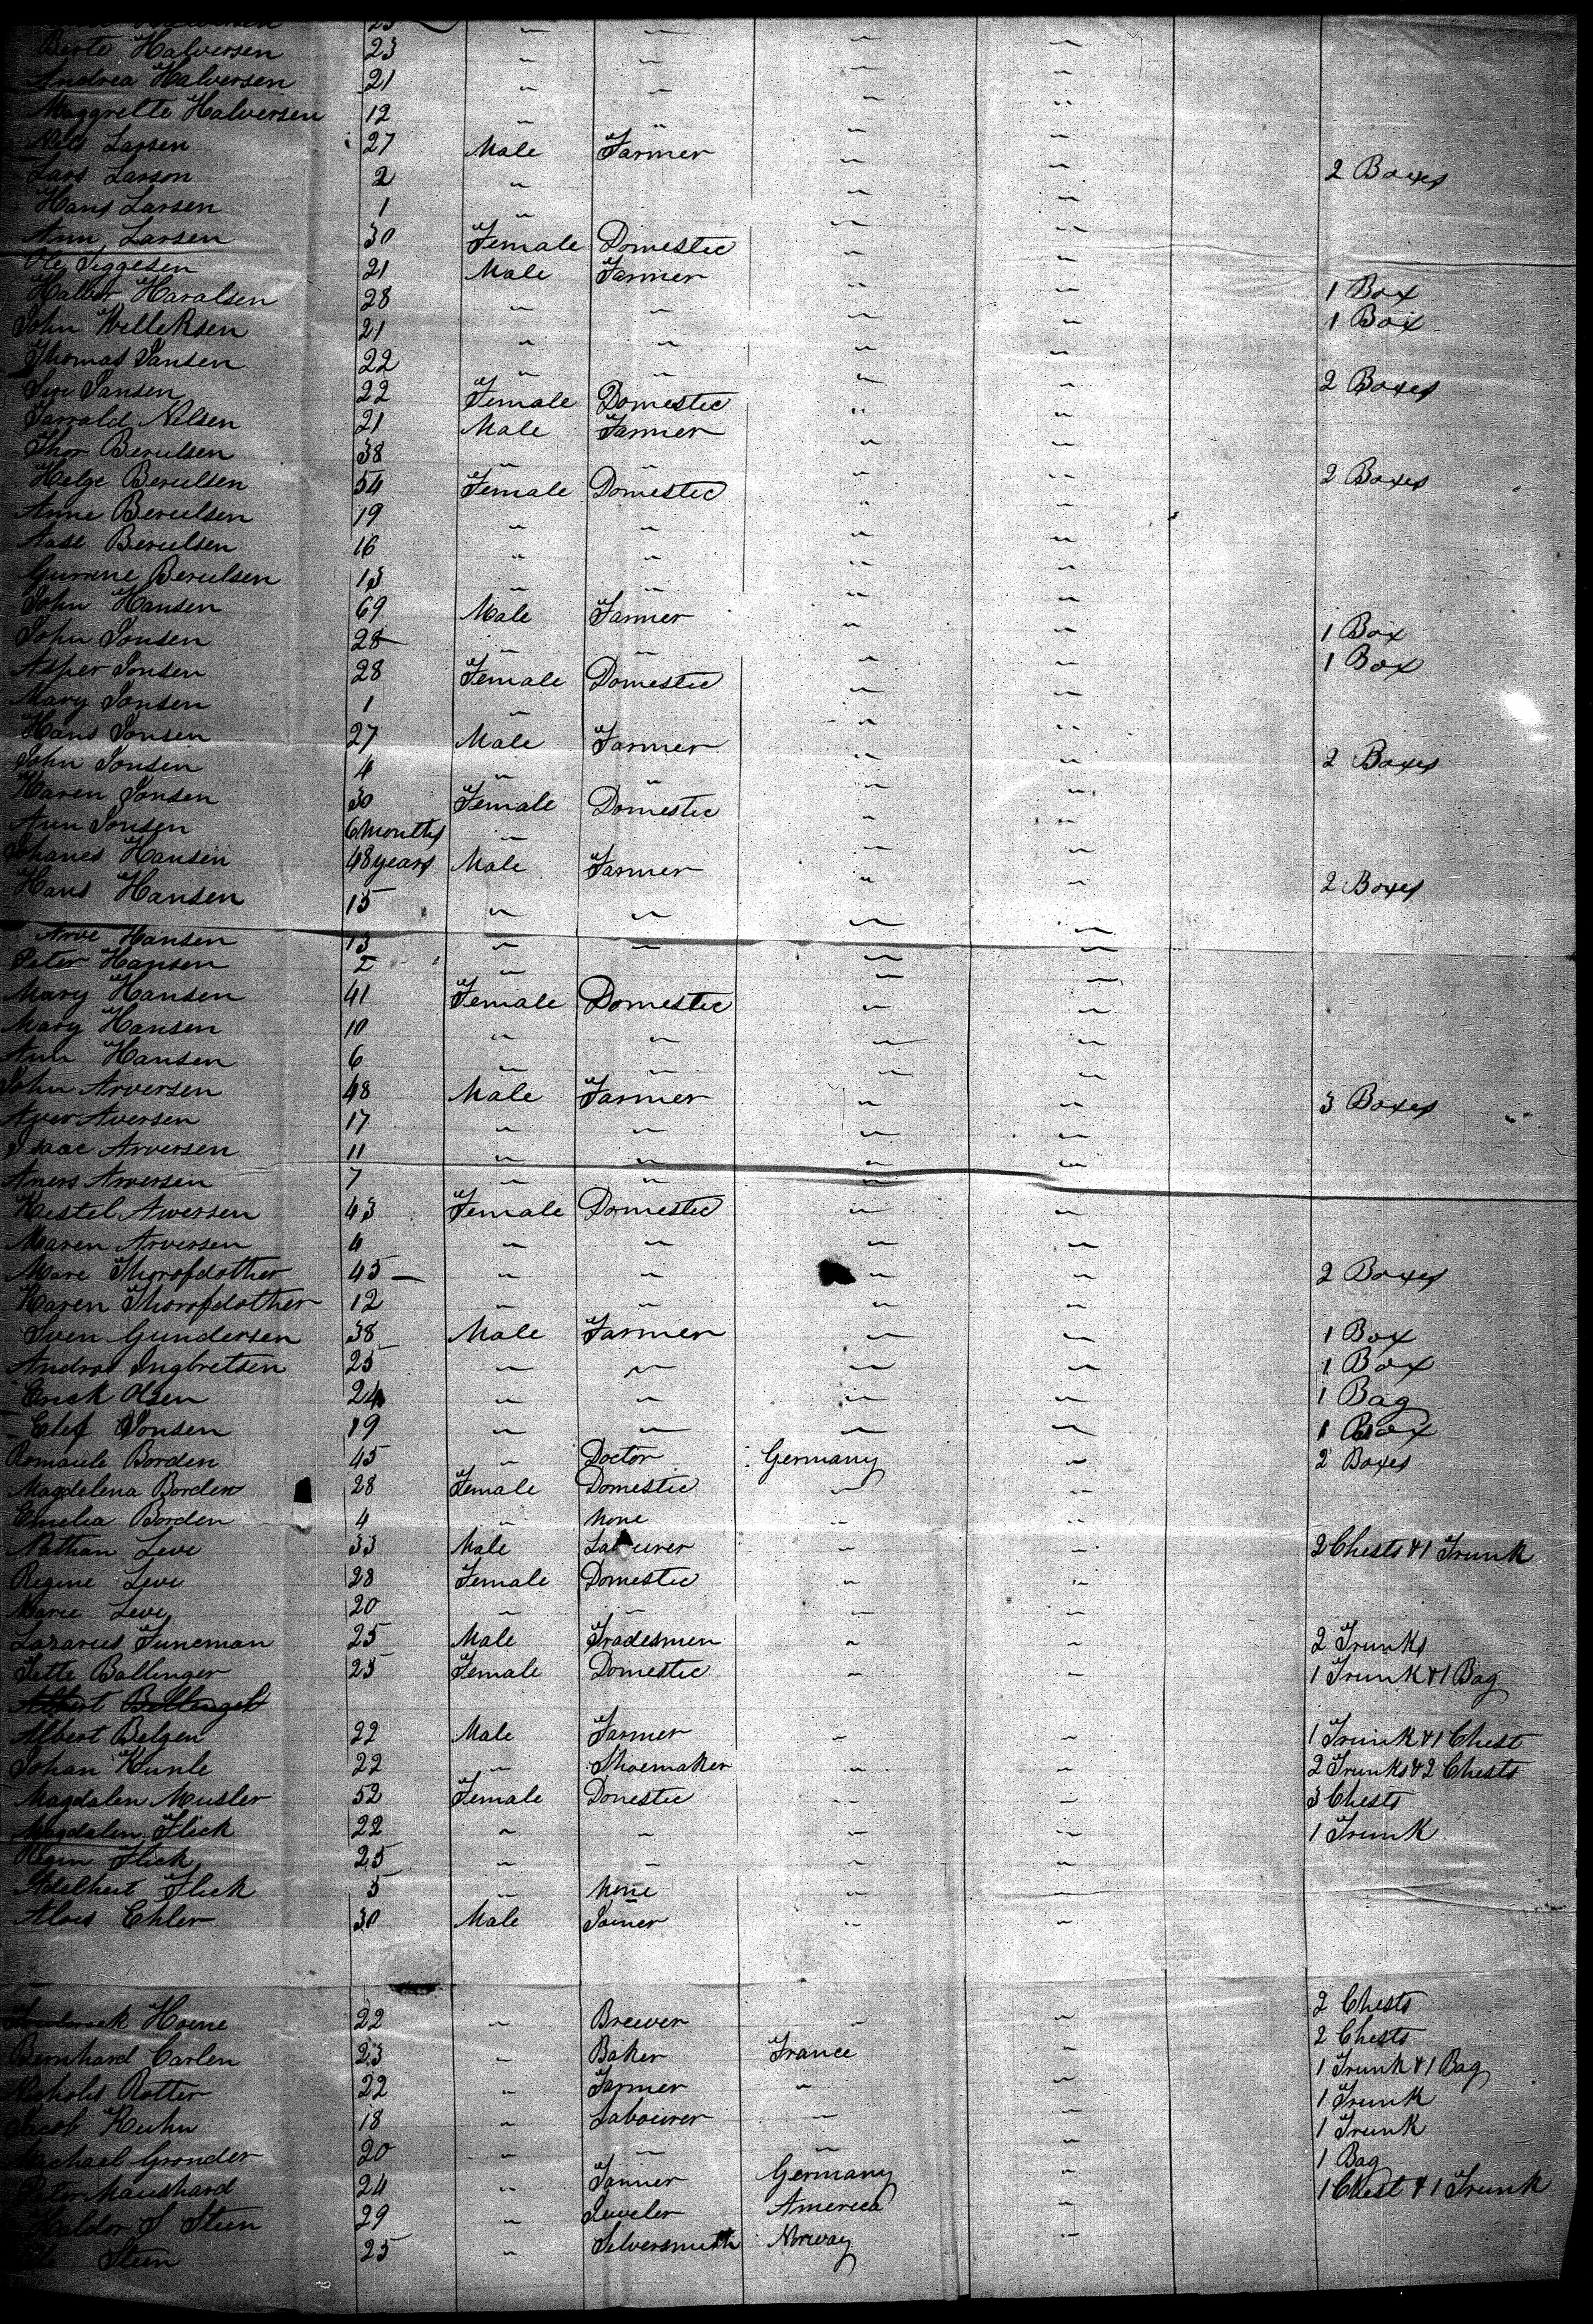 Halversen 23 " "
Berte Halversen 23 " " " "
Andrea Halversen 21 " " " "
Maggrette Halversen 12 " " " "
Nels Larsen 27 Male Farmer " " 2 Boxes
Lars Larson 2 " " "
Hans Larsen 1 " " "
Ann Larsen 30 Female Domestic " "
Ole Siggesen 21 Male Farmer " " 1 Box
Halvor Haralsen 28 " " " " 1 Box
John Welleksen 21 " " " "
Thomas Jansen 22 " " " " 2 Boxes
Siri Jansen 22 Female Domestic " "
Jarrald Nilsen 21 Male Farmer " "
Thor Berulsen 38 " " " " 2 Boxes
Helge Berulsen 54 Female Domestic " "
Anne Berulsen 19 " " " "
Aase Berulsen 16 " " " "
Gurrene Berulsen 13 " " " "
John Hansen 69 Male Farmer " " 1 Box
John Jonsen 28 " " " " 1 Box
Asper Jonsen 28 Female Domestic " "
Mary Jonsen 1 " " "
Hans Jonsen 27 Male Farmer " " 2 Boxes
John Jonsen 4 " " " "
Karen Jonsen 30 Female Domestic " "
Ann Jonsen 6 months " " "
Johanes Hansen 48 years Male Farmer " " 2 Boxes
Hans Hansen 15 " " " "
Arve Hansen 13 " " " "
Peter Hansen 2 " " "
Mary Hansen 41 Female Domestic " "
Mary Hansen 10 " " " "
Ann Hansen 6 " " " "
John Arversen 48 Male Farmer " " 3 Boxes
Aver Aversen 17 " " " "
Isaac Arversen 11 " " " "
Aners Arversen 7 " " "
Kestel Aversen 43 Female Domestic " "
Maren Arversen 4 " " " "
Mare Thorofdother 45 " " " " 2 Boxes
Karen Thorofdother 12 " " " "
Sven Gundersen 38 Male Farmer " " 1 Box
Andras Ingbretsen 25 " " " " 1 Box
Erick Olsen 24 " " " " 1 Bag
Elef Jonsen 19 " " " " 1 Box
Romaule Borden 45 " Doctor Germany " 2 Boxes
Magdelena Borden 28 Female Domestic " "
Emelia Borden 4 " None " "
Nathan Leve 33 Male Labourer " " 2 Chests & 1 Trunk
Regine Leve 28 Female Domestic " "
Marie Leve 20 " " " "
Lazarus Juneman 25 Male Tradesmen " " 2 Trunks
Jette Ballenger 25 Female Domestic " " 1 Trunk & 1 Bag
Albert Bellenger
Albert Belgen 22 Male Farmer " " 1 Trunk & 1 Chest
Johan Kunle 22 " Shoemaker " " 2 Trunks & 2 Chests
Magdalen Musler 52 Female Domestic " " 3 Chests
Magdalen Flick 22 " " " " 1 Trunk
Regin Flick 25 " " " "
Adelheit Flick 5 " None " "
Alois Ehler 30 Male Joiner " "
2 Chests
Horne 22 " Brewer " " 2 Chests
Bernhard Carlen 23 " Baker France " 1 Trunk & 1 Bag
Nicholas Rotter 22 " Farmer " " 1 Trunk
Jacob Kuhn 18 " Labourer " " 1 Trunk
Michael Gronder 20 " " " " 1 Bag
Peter Maushard 24 " Tanner Germany " 1 Chest & 1 Trunk
Haldor S Steen 29 " Jeweler America "
Steen 25 " Silversmith Norway "